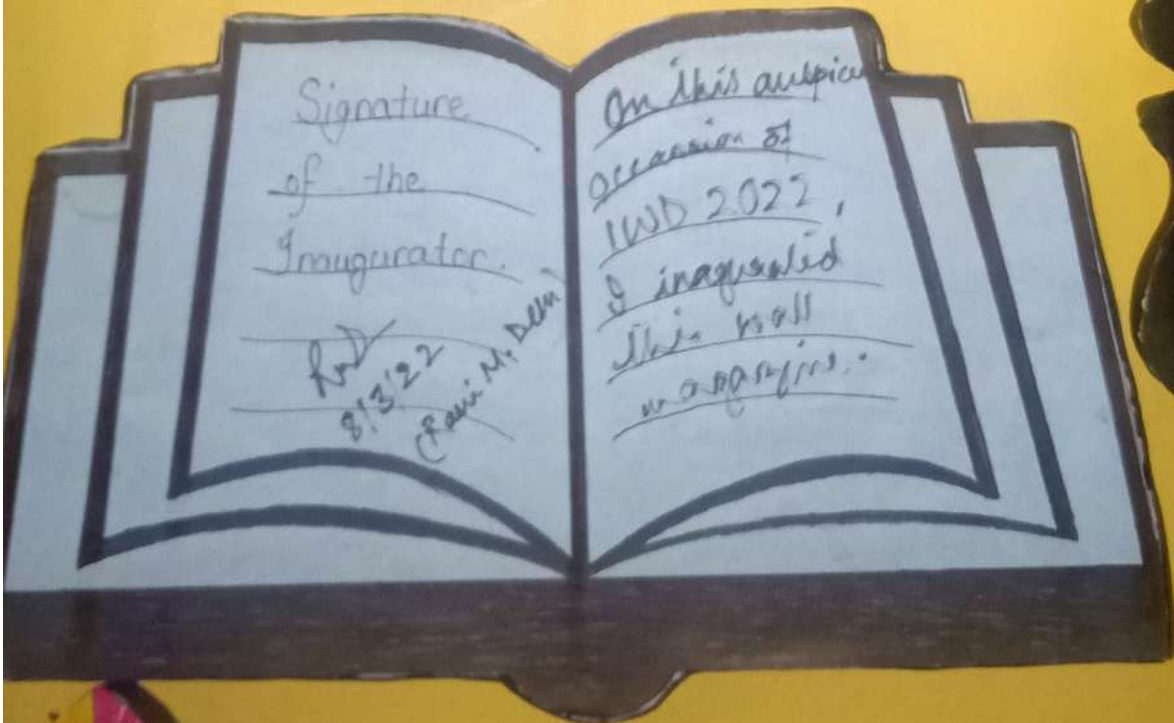 Signature
of the
Inaugurator.
8/3/22
(Rani M,
On this auspicu
occassion of
IWD 2022,
I inagurated
this wall
magazine.